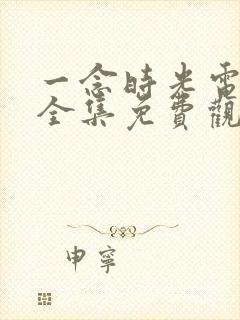 一念時光電
全集免費觀
申寧